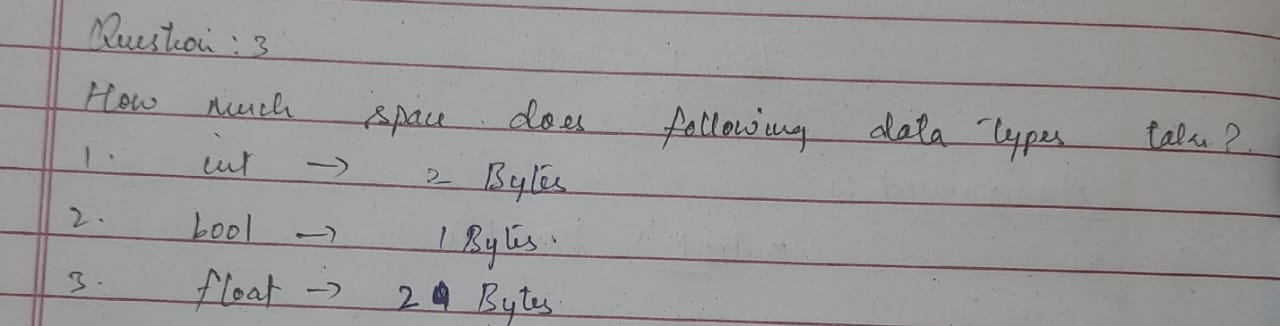 Question : 3
How much space does following data types take?
1. int → 2 Bytes
2. bool → 1 Bytes.
3. float → 2 4 Bytes.